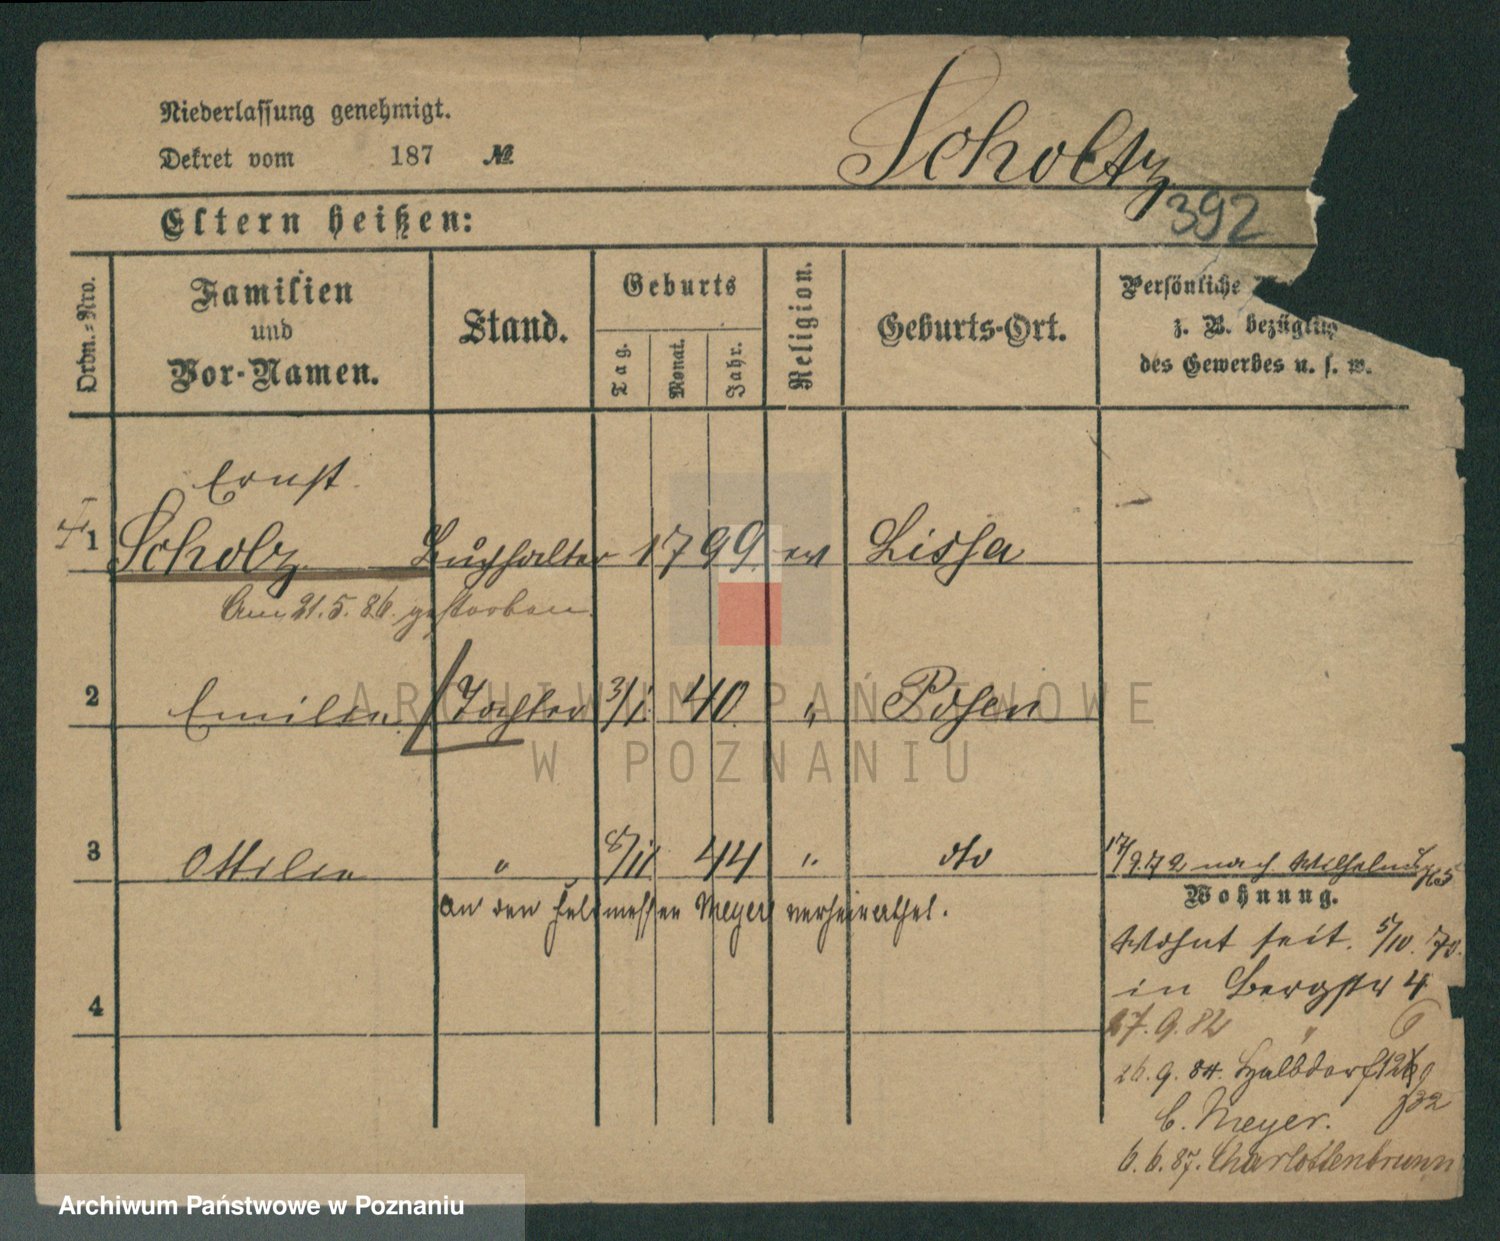 Niederlassung genehmigt.
Dekret vom 187 №
Scholtz
392
Eltern heißen:
Ordn.-Nro.
Familien
und
Vor-Namen.
Stand.
Geburts
Tag.
Monat.
Jahr.
Religion.
Geburts-Ort.
Persönliche
z. B. bezüglich
des Gewerbes u. s. w.
Ernst
1 Scholz Buchhalter 1799 ev Lissa
Am 21.5.86. gestorben.
2 Emilie Tochter 3/1. 40. " Posen
3 Ottilie " 8/11 44 " dto
17/9.72 nach Wilhelms
an den Feldmesser Meyer verheirathet.
Wohnung.
Wohnt seit. 5/10. 70.
in Bergstr 4
27.9.82 " 6
26.9.84. Halbdorfst
b. Meyer. 32
6.6.87. Charlottenbrunn
4
ARCHIWUM PAŃSTWOWE
W POZNANIU
Archiwum Państwowe w Poznaniu